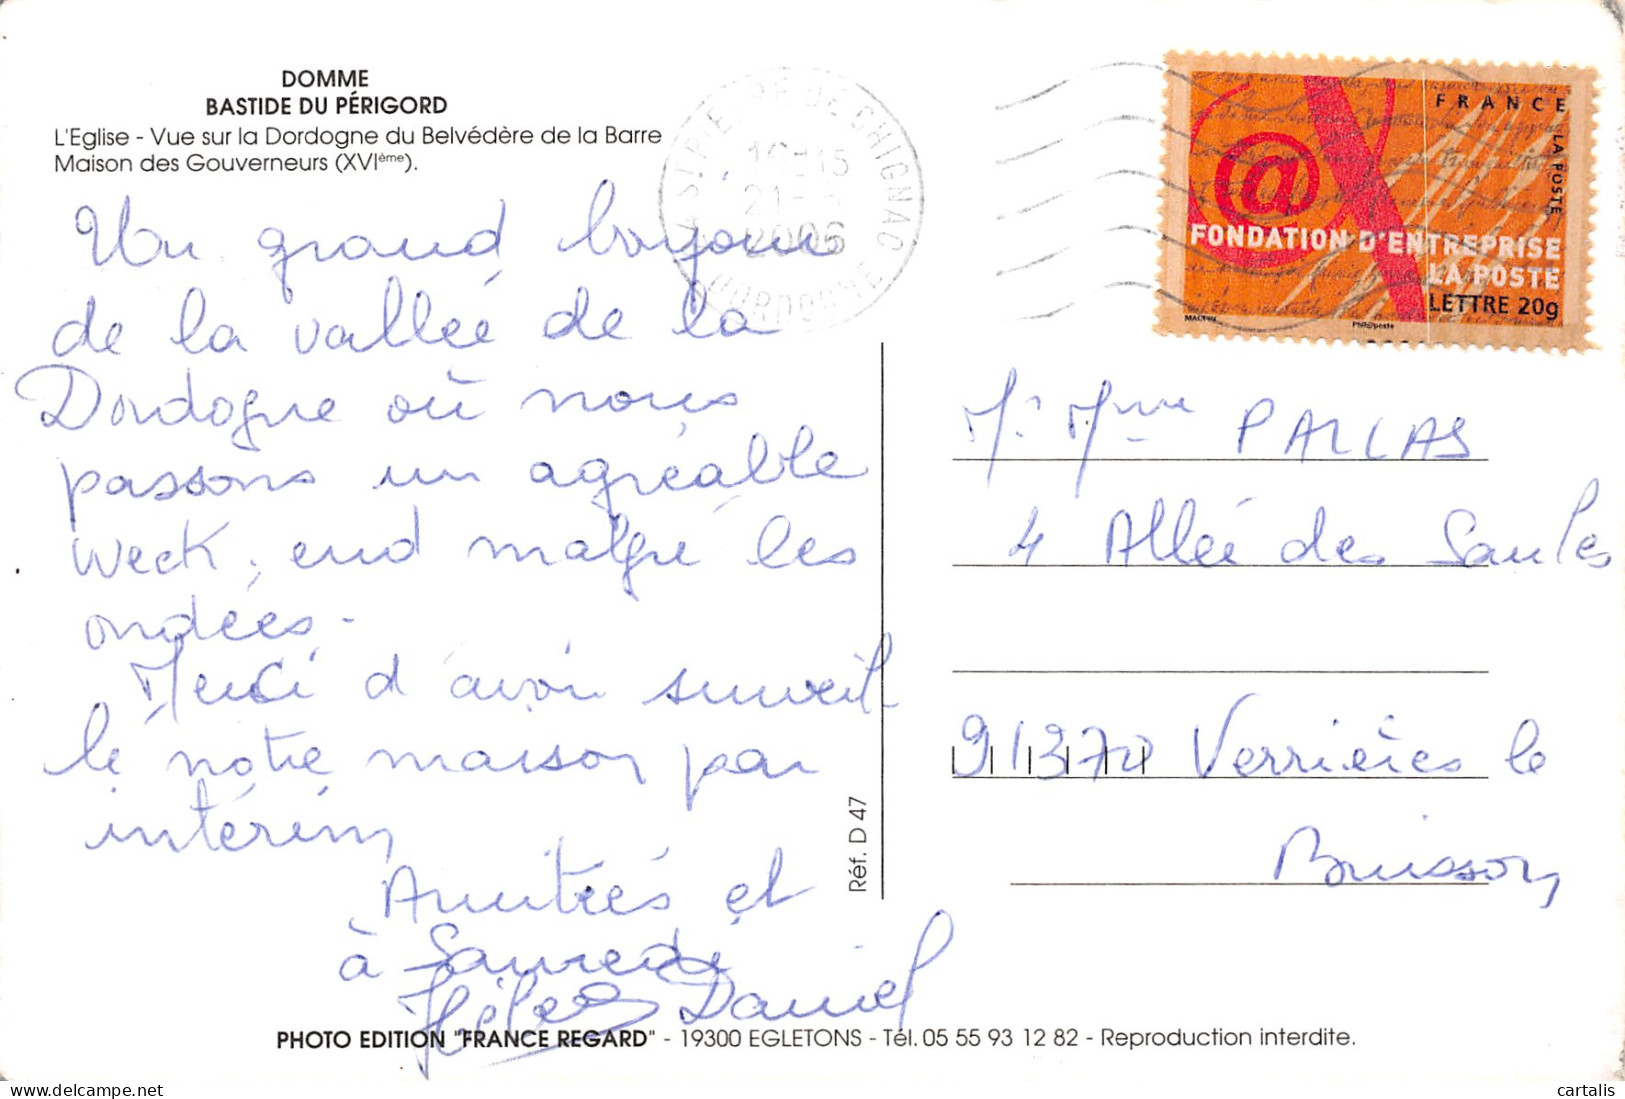 DOMME
BASTIDE DU PÉRIGORD
L'Eglise - Vue sur la Dordogne du Belvédère de la Barre
Maison des Gouverneurs (XVIème).
Un grand bonjour
de la vallée de la
Dordogne où nous
passons un agréable
week-end malgré les
ondées.
Merci d'avoir surveil-
lé notre maison par
intérim
Amitiés et
à Samedi
Hélène Daniel
Réf. D 47
ST PIERRE DE CHIGNAC
21
2006
DORDOGNE
FRANCE
LA POSTE
@
FONDATION D'ENTREPRISE
LA POSTE
LETTRE 20g
Phil@poste
Mr Mme PALLAS
4 Allée des Saules
91370 Verrières le
Buisson
PHOTO EDITION "FRANCE REGARD" - 19300 EGLETONS - Tél. 05 55 93 12 82 - Reproduction interdite.
cartalis